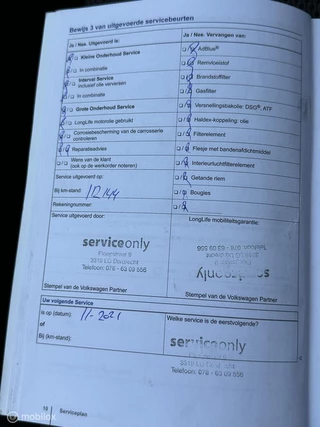 Bewijs 3 van uitgevoerde servicebeurten
Ja / Nee. Uitgevoerd is:
Kleine Onderhoud Service
In combinatie
Interval Service
Inclusief olie verversen
In combinatie
Grote Onderhoud Service
LongLife motorolie gebruikt
Corrosiebescherming van de carrosserie
controleren
Reparatieadvies
Wens van de klant
(ook op de werkorder noteren)
Service uitgevoerd op:
Bij km-stand:
Rekeningnummer:
Ja / Nee. Vervangen van:
AdBlue®
Remvloeistof
Brandstoffilter
Gasfilter
Versnellingsbakolie: DSG®, ATF
Haldex-koppeling: olie
Filterelement
Flesje met bandenafdichtmiddel
Interieurluchtfilterelement
Getande riem
Bougies
Service uitgevoerd door:
serviceonly
3319 LG Dordrecht
Telefoon: 078 - 63 09 556
Stempel van de Volkswagen Partner
LongLife mobiliteitsgarantie:
Telefoon: 078 - 63 09 556
serviceonly
Stempel van de Volkswagen Partner
Uw volgende Service
is op (datum): 11-2021
of
Bij (km-stand):
Welke service is de eerstvolgende?
serviceonly
3319 LG Dordrecht
Telefoon: 078 - 63 09 556
18 Serviceplan
mobilox